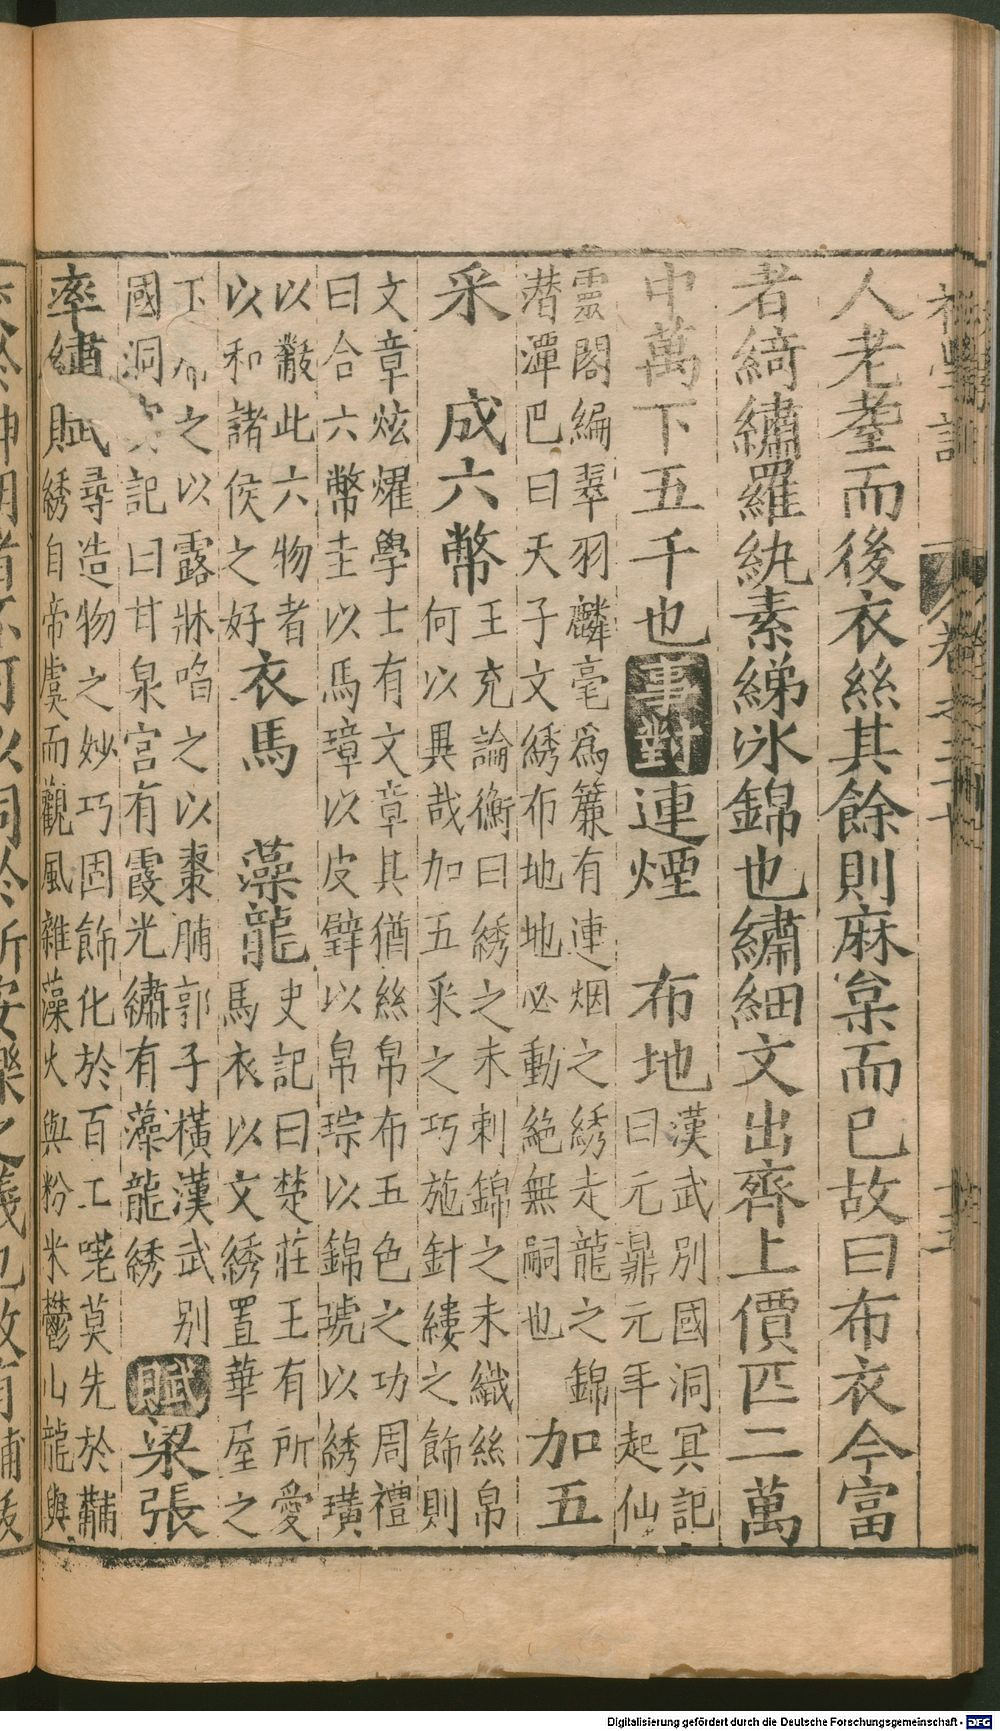 人老耋而後衣絲其餘則麻枲而已故曰布衣今富
者綺繡羅紈素綈冰錦也繡細文出齊上價匹二萬
中萬下五千也事對連煙 布地
漢武別國洞冥記
曰元鼎元年起仙
靈閣編翠羽麟毫為簾有連烟之綉走龍之錦
潛潭巴曰天子文綉布地地必動絶無嗣也
加五
采 成六幣
王充論衡曰綉之未刺錦之未織絲帛
何以異哉加五采之巧施針縷之飾則
文章炫燿學士有文章其猶絲帛布五色之功周禮
曰合六幣圭以馬璋以皮璧以帛琮以錦琥以綉璜
以黻此六物者
以和諸侯之好
衣馬 藻龍
史記曰楚莊王有所愛
馬衣以文綉置華屋之
下 之以露牀啗之以棗脯郭子橫漢武別
國洞 記曰甘泉宮有霞光繡有藻龍綉
賦梁張
率繡賦
尋造物之妙巧固飾化於百工嗟莫先於黼
則綉自帝虞而觀風雜藻火與粉米鬱山龍與
Digitalisierung gefördert durch die Deutsche Forschungsgemeinschaft - DFG